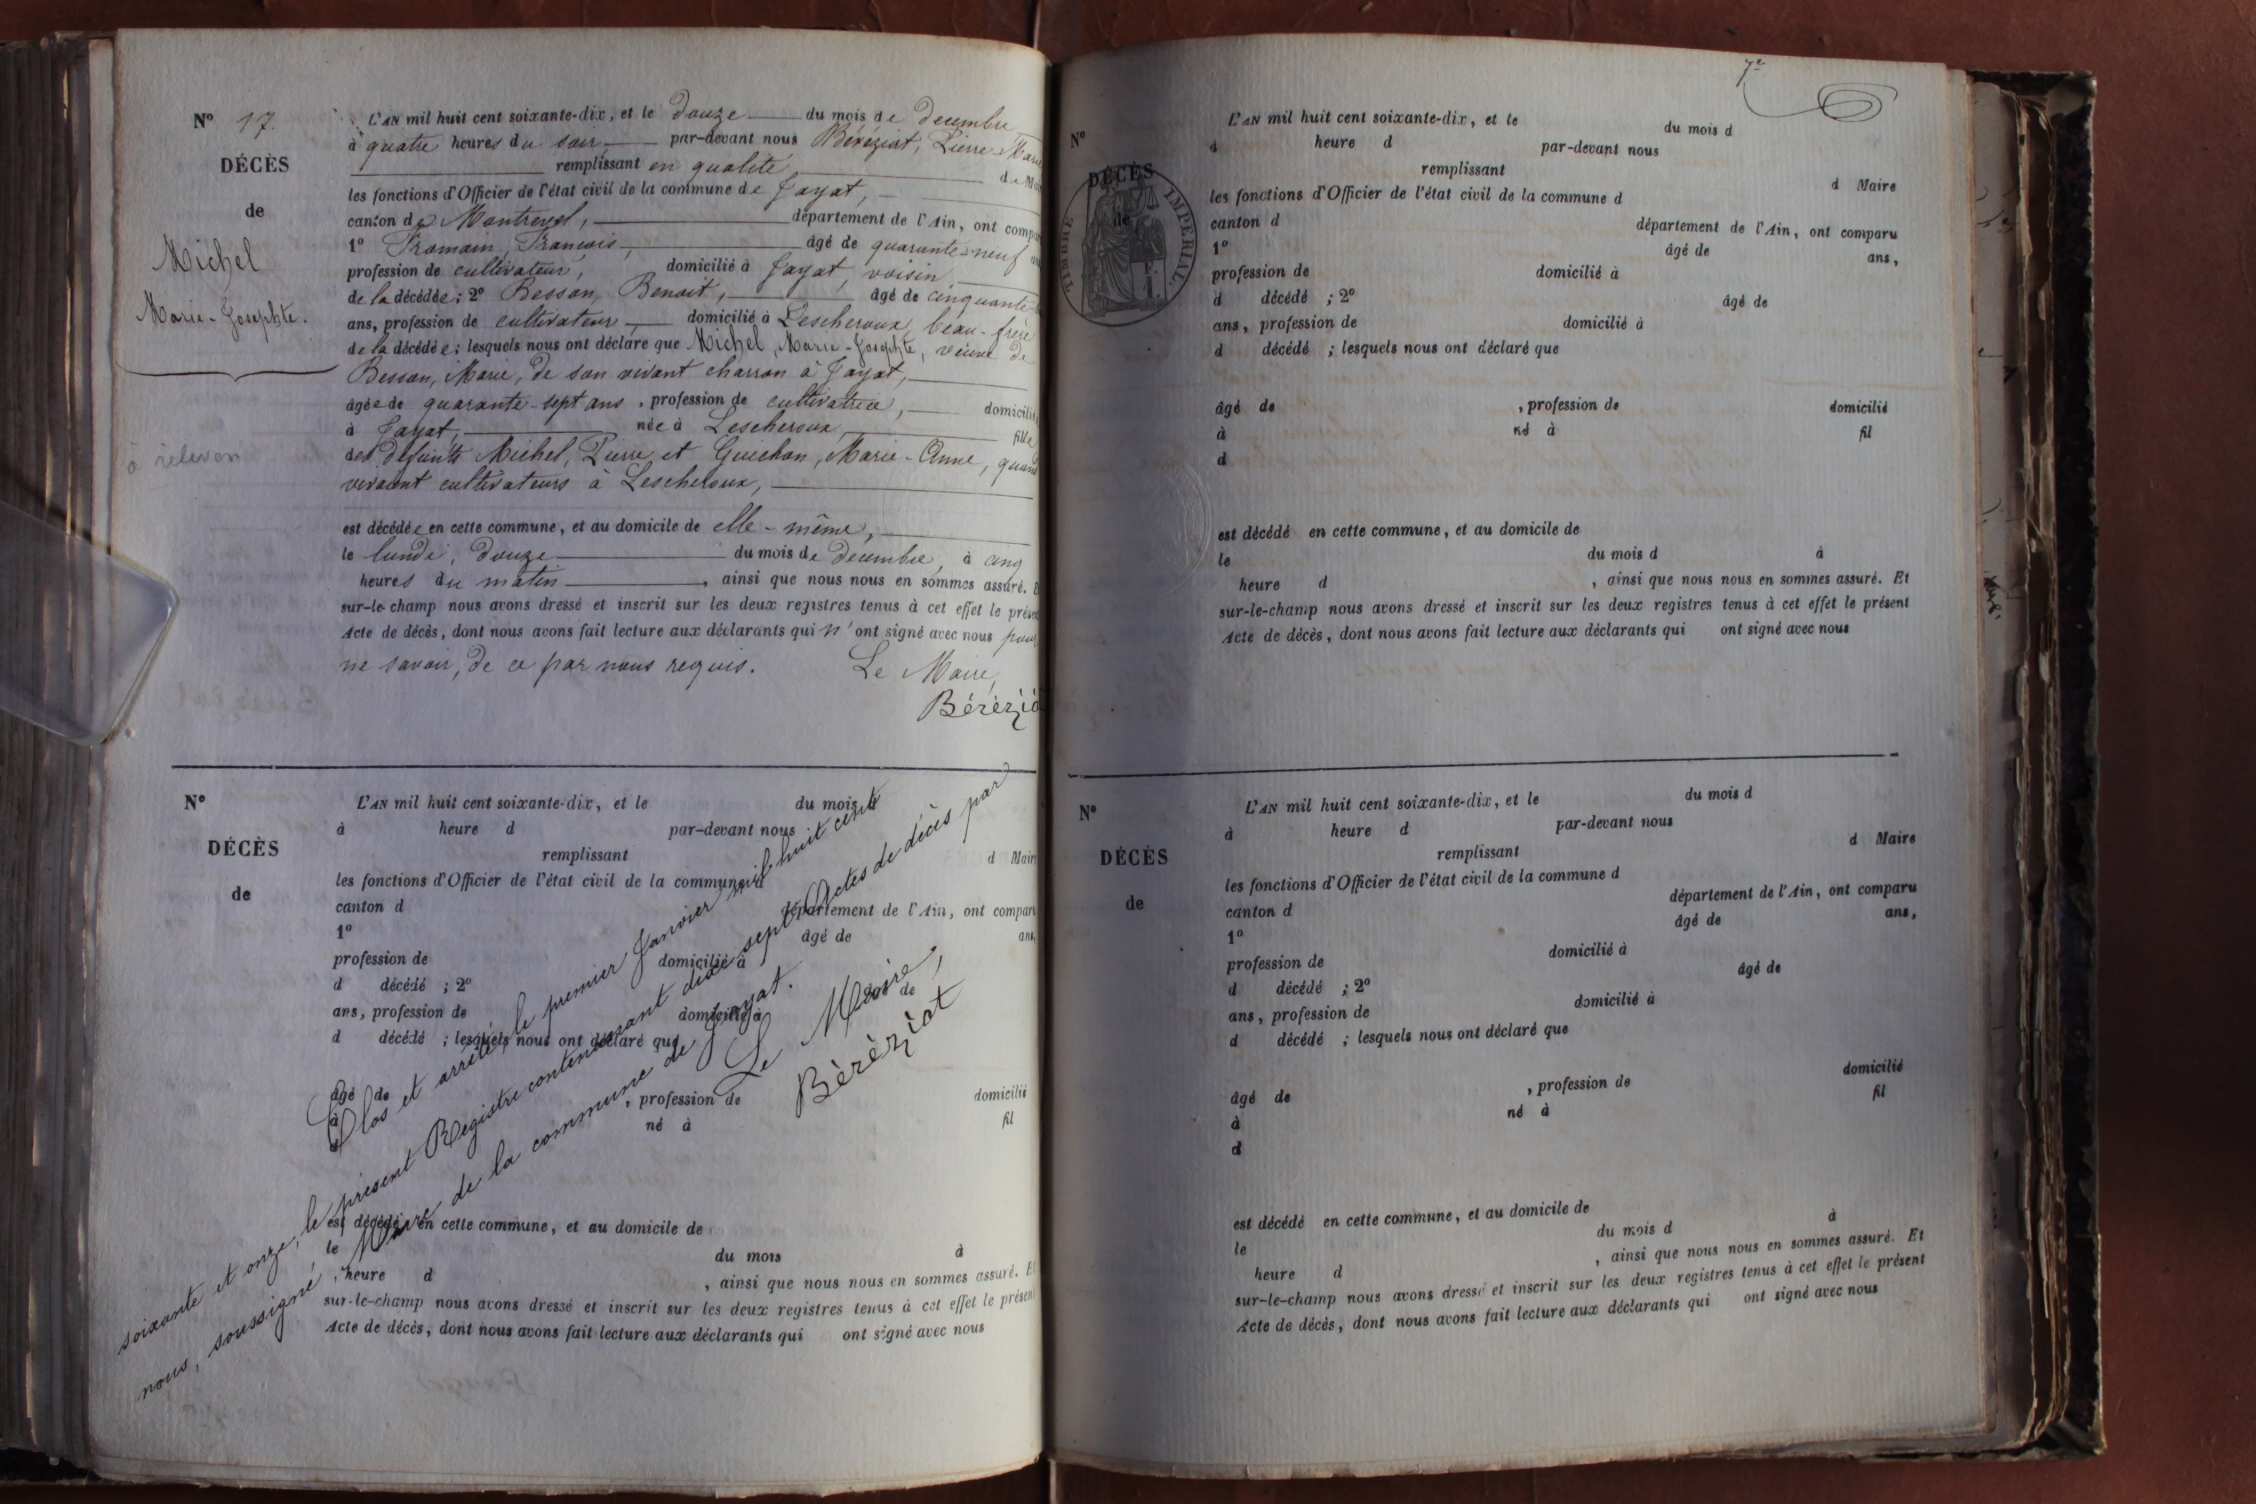 N° 17.
DÉCÈS
de
Michel
Marie-Josephte.
à relever
L'AN mil huit cent soixante-dix, et le douze du mois de decembre
à quatre heures du soir, par-devant nous Béréziat, Pierre-Marie
remplissant en qualité de Mai
les fonctions d'Officier de l'état civil de la commune de Jayat,
canton de Montrevel, département de l'Ain, ont compa
1° Fromain, François, âgé de quarante-neuf an
profession de cultivateur, domicilié à Jayat, voisin
de la décédée ; 2° Besson, Benoit, âgé de cinquante
ans, profession de cultivateur, domicilié à Lescheroux, beau-frère
de la décédée ; lesquels nous ont déclaré que Michel, Marie-Josephte, veuve de
Besson, Marie, de son vivant charron à Jayat,
âgée de quarante-sept ans, profession de cultivatrice, domicilié
à Jayat, née à Lescheroux, fille
des defunts Michel, Pierre et Guichon, Marie-Anne, quand
vivaient cultivateurs à Lescheroux,
est décédée en cette commune, et au domicile de elle-même,
le lundi, douze du mois de decembre, à cinq
heures du matin, ainsi que nous nous en sommes assuré. E
sur-le-champ nous avons dressé et inscrit sur les deux registres tenus à cet effet le présen
Acte de décès, dont nous avons fait lecture aux déclarants qui n'ont signé avec nous pour
ne savoir, de ce par nous requis. Le Maire,
Béréziat
N°
DÉCÈS
de
L'AN mil huit cent soixante-dix, et le du mois d
à heure d par-devant nous
remplissant d Maire
les fonctions d'Officier de l'état civil de la commune d
canton d département de l'Ain, ont comparu
1° âgé de ans,
profession de domicilié à
d décédé ; 2° âgé de
ans, profession de domicilié à
d décédé ; lesquels nous ont déclaré que
âgé de , profession de domicilié
à né à fil
d
est décédé en cette commune, et au domicile de
le du mois à
heure d , ainsi que nous nous en sommes assuré. E
sur-le-champ nous avons dressé et inscrit sur les deux registres tenus à cet effet le présent
Acte de décès, dont nous avons fait lecture aux déclarants qui ont signé avec nous
Clos et arrêté, le premier Janvier mil huit cent
soixante et onze, le présent Registre contenant dix sept Actes de décès par
nous, soussigné Maire de la commune de Jayat.
Le Maire,
Béréziat
7e
N°
DÉCÈS
de
TIMBRE IMPÉRIAL
L'AN mil huit cent soixante-dix, et le du mois d
à heure d par-devant nous
remplissant d Maire
les fonctions d'Officier de l'état civil de la commune d
canton d département de l'Ain, ont comparu
1° âgé de ans,
profession de domicilié à
d décédé ; 2° âgé de
ans, profession de domicilié à
d décédé ; lesquels nous ont déclaré que
âgé de , profession de domicilié
à né à fil
d
est décédé en cette commune, et au domicile de
le du mois d à
heure d , ainsi que nous nous en sommes assuré. Et
sur-le-champ nous avons dressé et inscrit sur les deux registres tenus à cet effet le présent
Acte de décès, dont nous avons fait lecture aux déclarants qui ont signé avec nous
N°
DÉCÈS
de
L'AN mil huit cent soixante-dix, et le du mois d
à heure d par-devant nous
remplissant d Maire
les fonctions d'Officier de l'état civil de la commune d
canton d département de l'Ain, ont comparu
1° âgé de ans,
profession de domicilié à
d décédé ; 2° âgé de
ans, profession de domicilié à
d décédé ; lesquels nous ont déclaré que
âgé de , profession de domicilié
à né à fil
d
est décédé en cette commune, et au domicile de
le du mois d à
heure d , ainsi que nous nous en sommes assuré. Et
sur-le-champ nous avons dressé et inscrit sur les deux registres tenus à cet effet le présent
Acte de décès, dont nous avons fait lecture aux déclarants qui ont signé avec nous